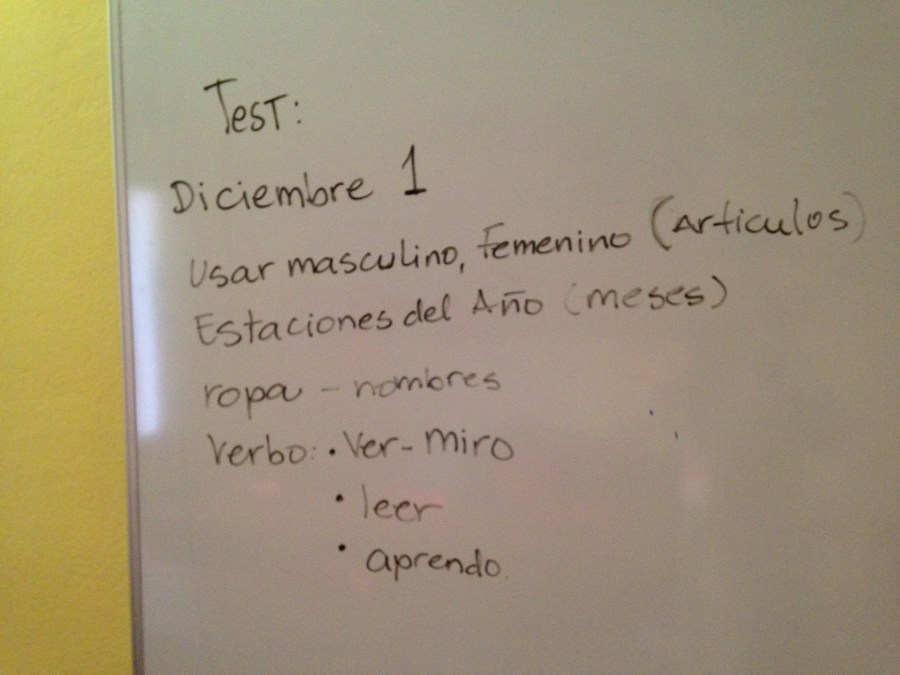 Test:
Diciembre 1
Usar masculino, Femenino (Articulos)
Estaciones del Año (meses)
ropa - nombres
Verbo: • Ver - Miro
• leer
• aprendo.